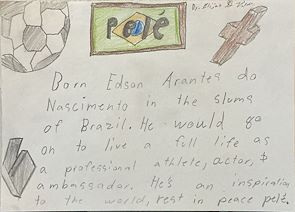 pelé
Born Edson Arantes do
Nascimento in the slums
of Brazil. He would go
on to live a full life as
a professional athlete, actor, &
ambassador. He's an inspiration
to the world, rest in peace pelé.